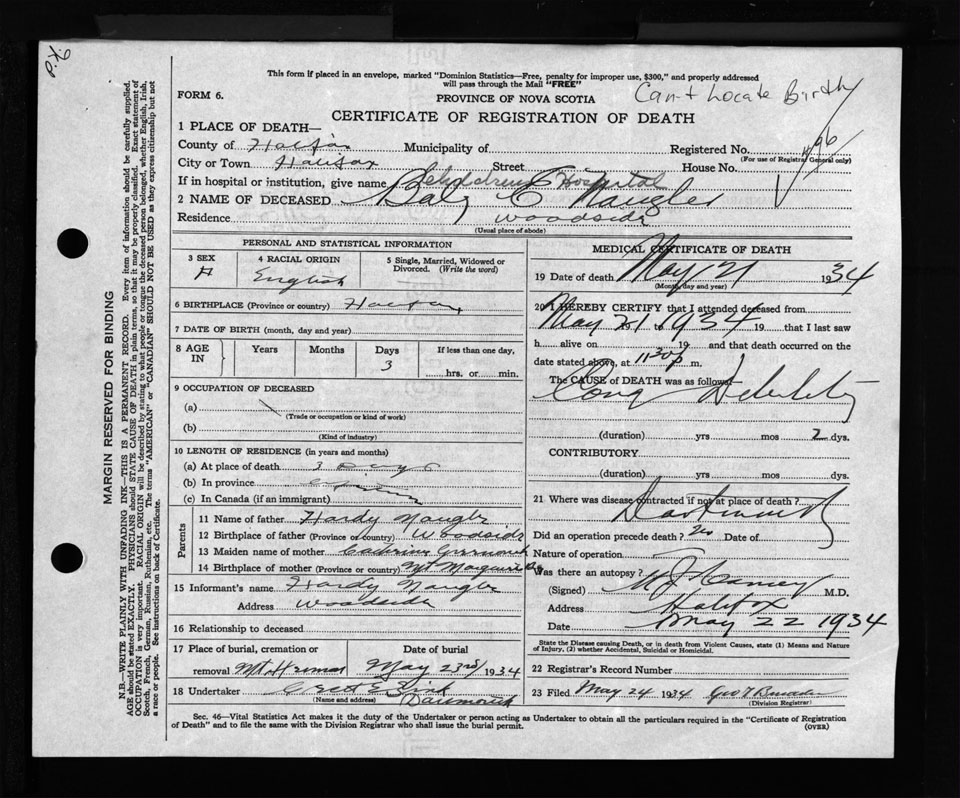 This form if placed in an envelope, marked "Dominion Statistics—Free, penalty for improper use, $300," and properly addressed
will pass through the Mail "FREE"
FORM 6.
PROVINCE OF NOVA SCOTIA
Can't Locate Birth
CERTIFICATE OF REGISTRATION OF DEATH
1 PLACE OF DEATH—
County of Halifax Municipality of Registered No.
(For use of Registrar General only)
City or Town Halifax Street House No.
If in hospital or institution, give name Children's Hospital
2 NAME OF DECEASED Baby Naugler
Residence Woodside
(Usual place of abode)
PERSONAL AND STATISTICAL INFORMATION
3 SEX 4 RACIAL ORIGIN 5 Single, Married, Widowed or
Divorced. (Write the word)
English
6 BIRTHPLACE (Province or country) Halifax
7 DATE OF BIRTH (month, day and year)
8 AGE IN Years Months Days If less than one day,
3 hrs. or min.
9 OCCUPATION OF DECEASED
(a)
(Trade or occupation or kind of work)
(b)
(Kind of industry)
10 LENGTH OF RESIDENCE (in years and months)
(a) At place of death 3 Days
(b) In province
(c) In Canada (if an immigrant)
Parents
11 Name of father Hardy Naugler
12 Birthplace of father (Province or country) Woodside
13 Maiden name of mother
14 Birthplace of mother (Province or country)
15 Informant's name Hardy Naugler
Address Woodside
16 Relationship to deceased
17 Place of burial, cremation or Date of burial
removal Mt. Hermon May 23rd 1934
18 Undertaker
(Name and address) Dartmouth
MEDICAL CERTIFICATE OF DEATH
19 Date of death May 21 1934
(Month, day and year)
20 I HEREBY CERTIFY that I attended deceased from
May 21 1934 19 that I last saw
h alive on 19 and that death occurred on the
date stated above, at 11.30 p m.
The CAUSE of DEATH was as follows—
Cong Debility
(duration) yrs mos 2 dys.
CONTRIBUTORY
(duration) yrs mos dys.
21 Where was disease contracted if not at place of death?
Dartmouth
Did an operation precede death? No Date of
Nature of operation
Was there an autopsy?
(Signed) M.D.
Address Halifax
Date May 22 1934
State the Disease causing Death, or in death from Violent Causes, state (1) Means and Nature
of Injury, (2) whether Accidental, Suicidal or Homicidal.
22 Registrar's Record Number
23 Filed May 24 1934 Geo
(Division Registrar)
Sec. 46—Vital Statistics Act makes it the duty of the Undertaker or person acting as Undertaker to obtain all the particulars required in the "Certificate of Registration
of Death" and to file the same with the Division Registrar who shall issue the burial permit. (OVER)
MARGIN RESERVED FOR BINDING
N.B.—WRITE PLAINLY WITH UNFADING INK—THIS IS A PERMANENT RECORD. Every item of information should be carefully supplied.
AGE should be stated EXACTLY. PHYSICIANS should STATE CAUSE OF DEATH in plain terms, so that it may be properly classified. Exact statement of
OCCUPATION is very important. RACIAL ORIGIN will be described by stating to what people or tongue the deceased person belonged, whether English, Irish,
Scotch, French, German, Russian, Ruthenian, etc. The terms "AMERICAN" or "CANADIAN" SHOULD NOT BE USED as they express citizenship but not
a race or people. See instructions on back of Certificate.